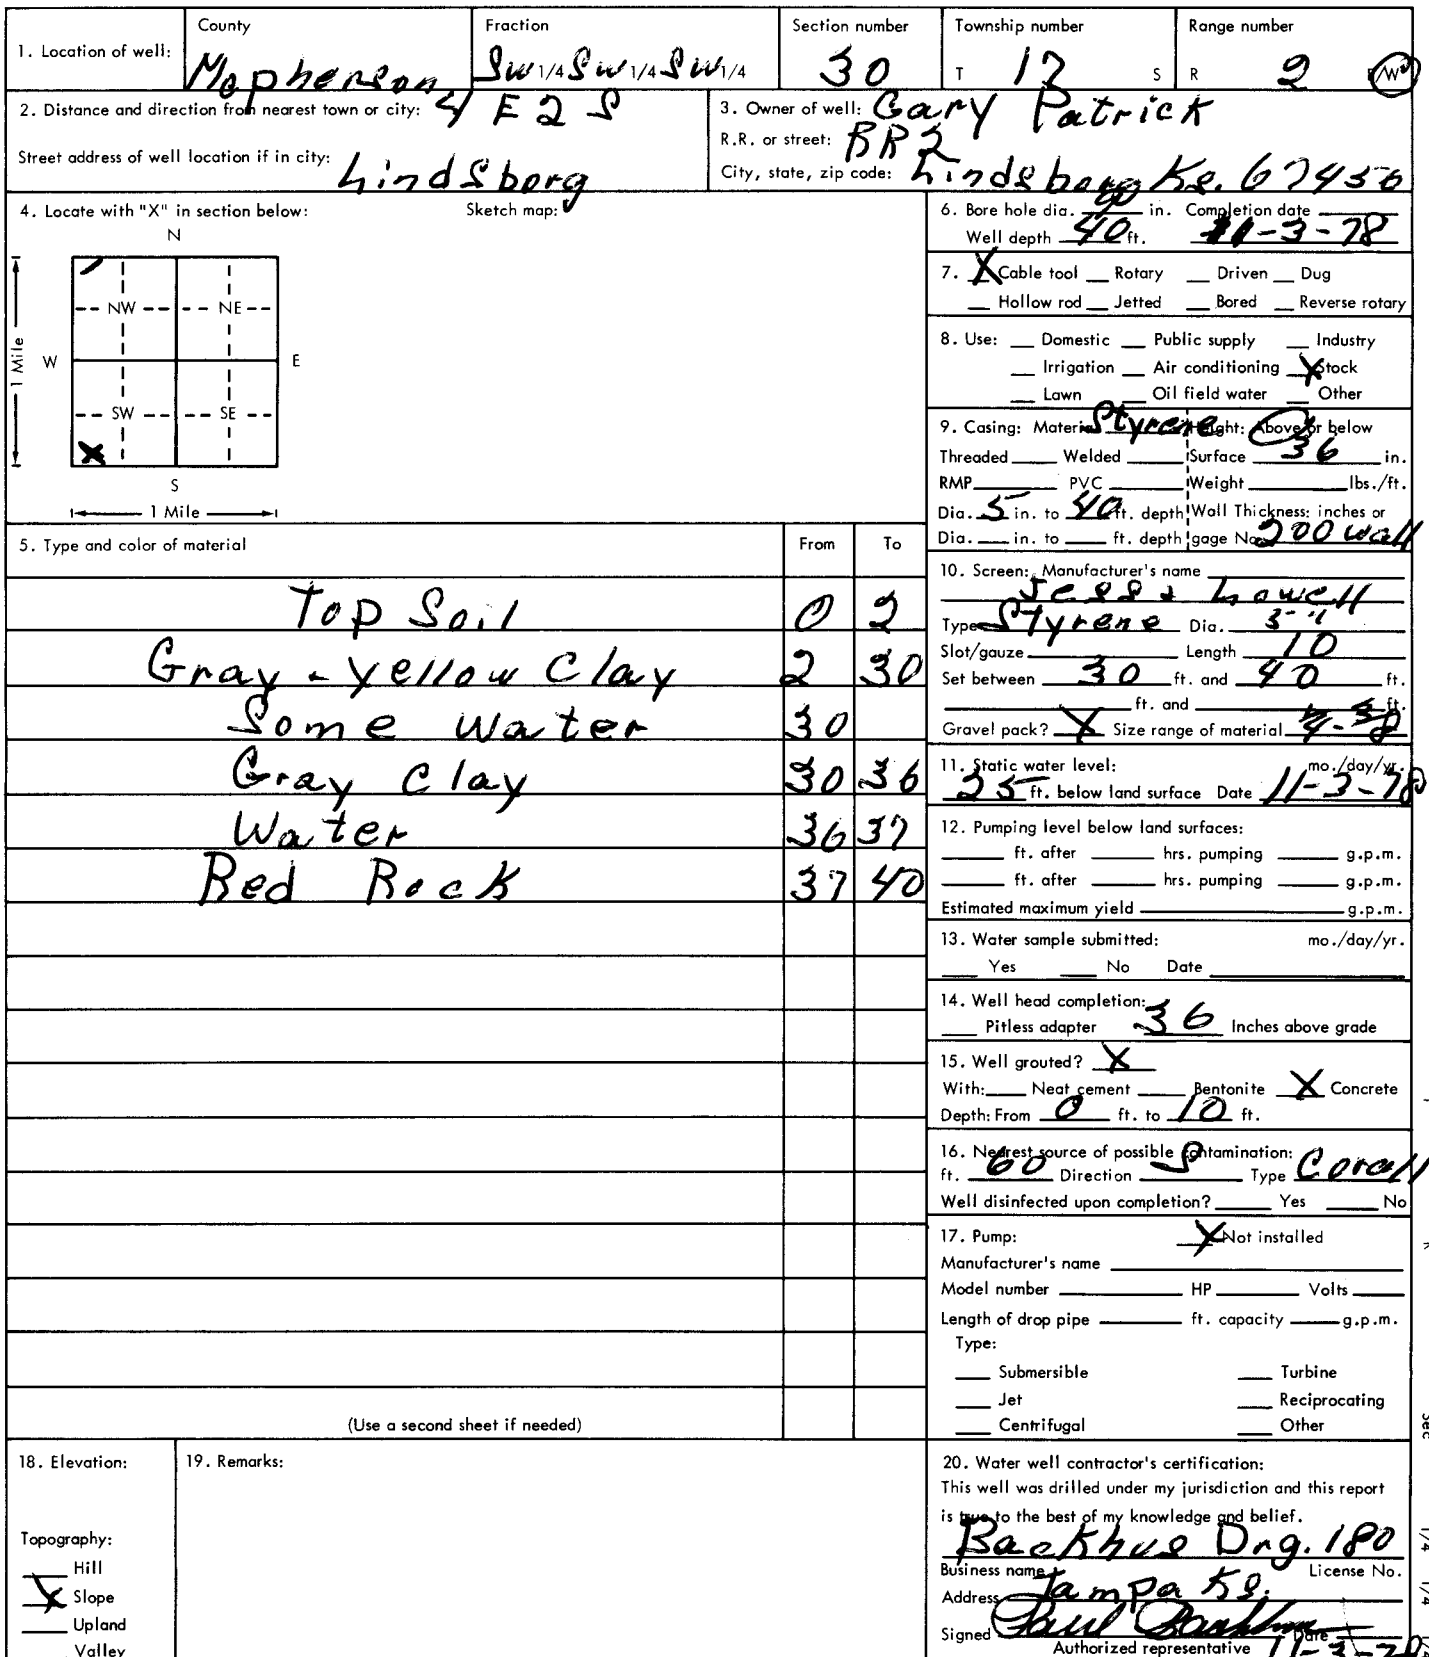 1. Location of well: County Mcpherson Fraction SW 1/4 SW 1/4 SW 1/4 Section number 30 Township number T 17 S Range number R 2 E/W
2. Distance and direction from nearest town or city: 4 E 2 S
Street address of well location if in city: Lindsborg
3. Owner of well: Gary Patrick
R.R. or street: RR2
City, state, zip code: Lindsborg Ks. 67456
4. Locate with "X" in section below: Sketch map:
N
NW NE
W E
1 Mile
SW SE
X
S
1 Mile
5. Type and color of material From To
Top Soil 0 2
Gray - yellow Clay 2 30
Some water 30
Gray Clay 30 36
Water 36 37
Red Rock 37 40
(Use a second sheet if needed)
6. Bore hole dia. in. Completion date
Well depth 40 ft. 11-3-78
7. X Cable tool Rotary Driven Dug
Hollow rod Jetted Bored Reverse rotary
8. Use: Domestic Public supply Industry
Irrigation Air conditioning X Stock
Lawn Oil field water Other
9. Casing: Material Styrene Height: Above or below
Threaded Welded Surface 36 in.
RMP PVC Weight lbs./ft.
Dia. 5 in. to 40 ft. depth Wall Thickness: inches or
Dia. in. to ft. depth gage No. 200 wall
10. Screen: Manufacturer's name
Jess & Lowell
Type Styrene Dia. 5"
Slot/gauze Length 10
Set between 30 ft. and 40 ft.
ft. and ft.
Gravel pack? X Size range of material
11. Static water level: mo./day/yr.
25 ft. below land surface Date 11-3-78
12. Pumping level below land surfaces:
ft. after hrs. pumping g.p.m.
ft. after hrs. pumping g.p.m.
Estimated maximum yield g.p.m.
13. Water sample submitted: mo./day/yr.
Yes No Date
14. Well head completion:
Pitless adapter 36 Inches above grade
15. Well grouted? X
With: Neat cement Bentonite X Concrete
Depth: From 0 ft. to 10 ft.
16. Nearest source of possible contamination:
ft. 60 Direction S Type Corall
Well disinfected upon completion? Yes No
17. Pump: X Not installed
Manufacturer's name
Model number HP Volts
Length of drop pipe ft. capacity g.p.m.
Type:
Submersible Turbine
Jet Reciprocating
Centrifugal Other
18. Elevation:
Topography:
Hill
X Slope
Upland
Valley
19. Remarks:
20. Water well contractor's certification:
This well was drilled under my jurisdiction and this report
is true to the best of my knowledge and belief.
Backhus Drg. 180
Business name License No.
Address Tampa Ks.
Signed Paul Backhus Date
Authorized representative 11-3-78
Sec
1/4 1/4 1/4